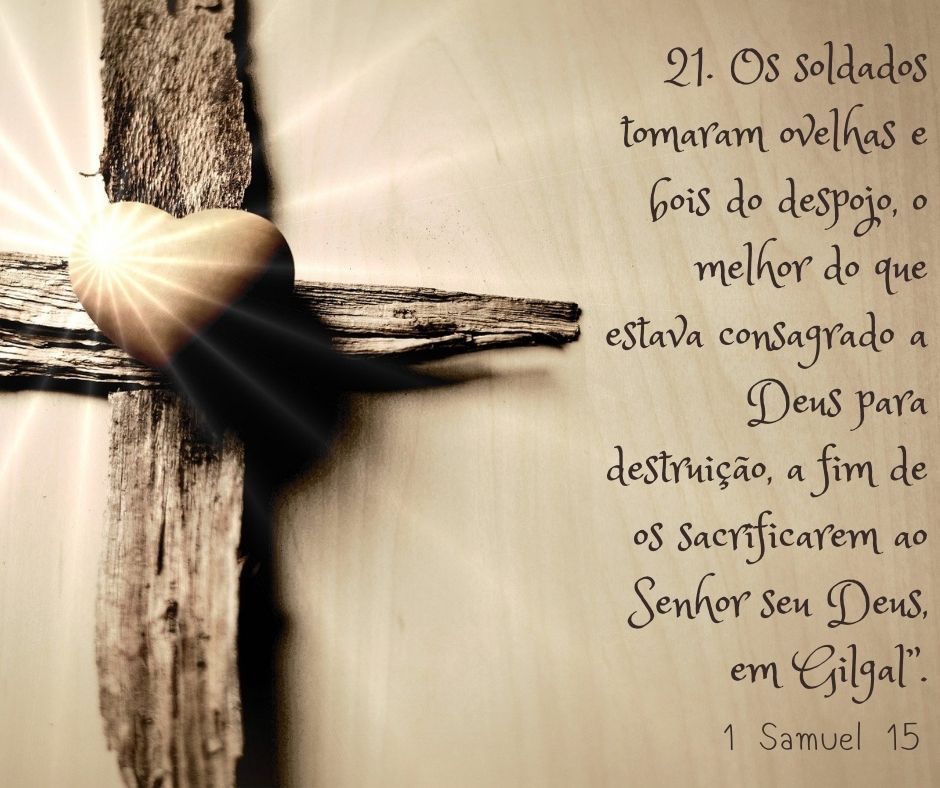 21. Os soldados
tomaram ovelhas e
bois do despojo, o
melhor do que
estava consagrado a
Deus para
destruição, a fim de
os sacrificarem ao
Senhor seu Deus,
em Gilgal”.
1 Samuel 15